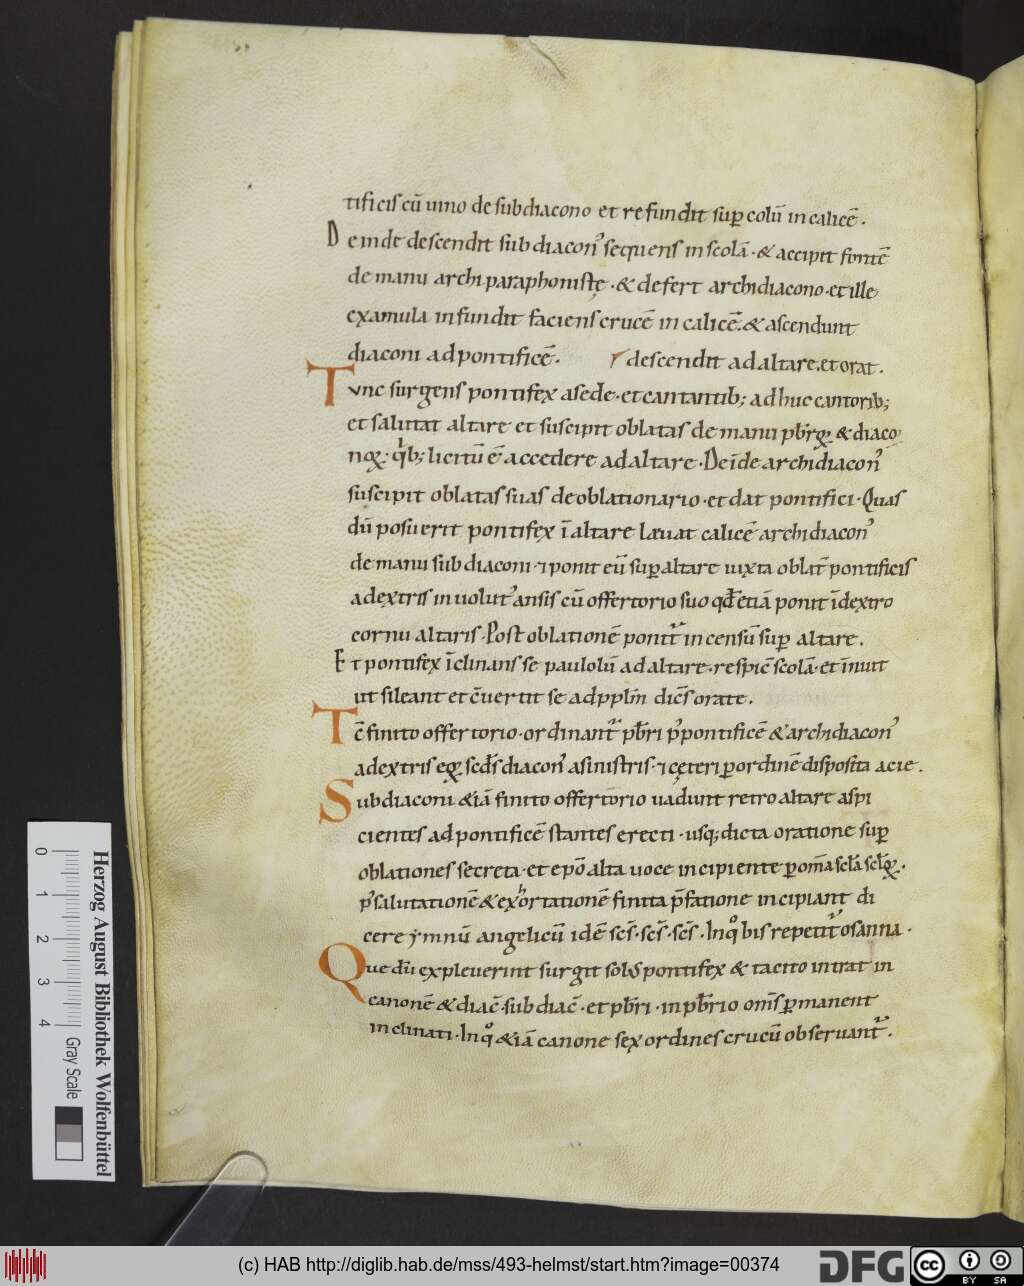 tificis cū uino de subdiacono et refundit sup̱ colū in calicē.
Deinde descendit subdiacon᾽ sequens in scolā · & accipit fontē
de manu archiparaphonistę · & defert archidiacono · et ille
ex amula infundit faciens crucē in calicē. & ascendunt
diaconi ad pontificē. descendit ad altare. et orat.
Tunc surgens pontifex a sede · et cantantib; adhuc cantorib;
et salutat altare et suscipit oblatas de manu pb̄rꝝ & diaco
noꝝ · qͥb; licitū ē accedere ad altare · Deīde archidiacon᾽
suscipit oblatas suas de oblationario · et dat pontifici · Quas
dū posuerit pontifex ī altare Læuat calicē archidiacon᾽
de manu subdiaconi · ⁊ ponit eū sup̱ altare iuxta oblat̄ pontificis
a dextris inuolut᾽ ansis cū offertorio suo qđ etiā ponit ī dextro
cornu altaris · Post oblationē ponit᷑ incensū sup̱ altare.
Et pontifex īclinans se paululū ad altare · respic̄ scolā · et īnuit
ut sileant et c̄uertit se ad pplm̄ dic̄s orate.
Tc̄ finito offertorio · ordinant᷑ pb̄ri p᾽ pontificē & archidiacon᾽
a dextris eꝝ scds̄ diacon᾽ a sinistris · ⁊ cęteri ꝑ ordinē disposita acie.
Subdiaconi & iā finito offertorio uadunt retro altare aspi
cientes ad pontificē stantes erecti · usq; dicta oratione sup̱
oblationes secreta · et ep̄o alta uoce incipiente ꝑ om̄a scl̄a scl̄oꝝ.
p᾽ salutationē & exhortationē finita p̄fatione incipiant di
cere ymnū angelicū idē scs̄ · scs̄ · scs̄ · In qͦ bis repetit᷑ osanna ·
Que dū expleuerint surgit sol᾽ pontifex & tacito intrat in
canonē & diac̄ · subdiac̄ · et pb̄ri · in pb̄rio oms̄ ꝑmanent
inclinati · In qͦ & iā canone sex ordines crucū obseruant᷑.
Herzog August Bibliothek Wolfenbüttel
Gray Scale
0 1 2 3 4
(c) HAB http://diglib.hab.de/mss/493-helmst/start.htm?image=00374
DFG
cc BY SA